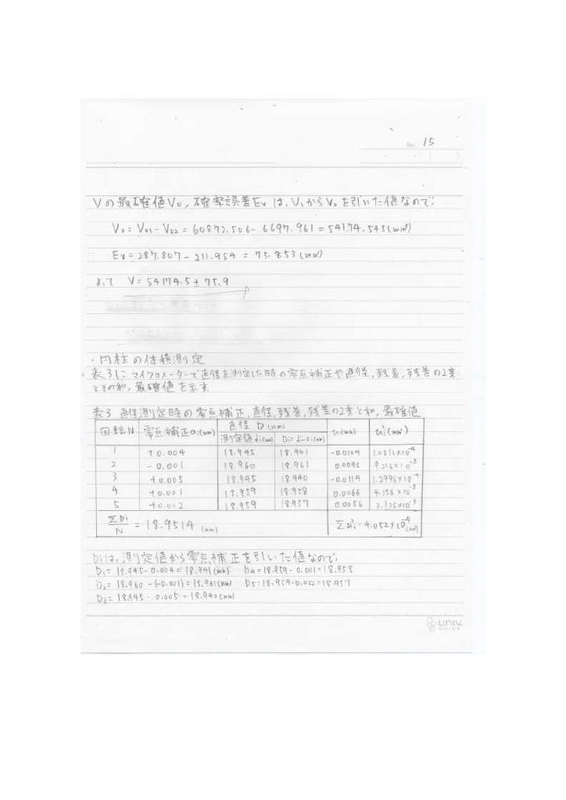 No. 15
Vの最確値V₀, 確率誤差Eᵥ は, V₁からV₂を引いた値なので,
V₀ = V₀₁ - V₀₂ = 60872.506 - 6697.961 = 54174.545(mm³)
Eᵥ = 287.807 - 211.954 = 75.853(mm³)
よって V = 54174.5 ± 75.9
・円柱の体積測定
表3に マイクロメーターで直径を測定した時の零点補正や直径, 残差, 残差の2乗
とその和, 最確値を示す.
表3 直径測定時の零点補正, 直径, 残差, 残差の2乗と和, 最確値
回数N 零点補正 (mm) 直径 D(mm) (mm) (mm²)
測定値 di(mm) Di = di - ai(mm)
1 +0.004 18.945 18.941 -0.0104 1.0816×10⁻⁴
2 -0.001 18.960 18.961 0.0096 9.216×10⁻⁵
3 +0.005 18.945 18.940 -0.0114 1.2996×10⁻⁴
4 +0.001 18.959 18.958 0.0066 4.356×10⁻⁵
5 +0.002 18.959 18.957 0.0056 3.136×10⁻⁵
ΣDi/N = 18.9514 (mm) = 4.052×10⁻⁴ (mm²)
Diは, 測定値から零点補正を引いた値なので,
D₁ = 18.945 - 0.004 = 18.941(mm) D₄ = 18.959 - 0.001 = 18.958
D₂ = 18.960 - (-0.001) = 18.961(mm) D₅ = 18.959 - 0.002 = 18.957
D₃ = 18.945 - 0.005 = 18.940(mm)
univ.